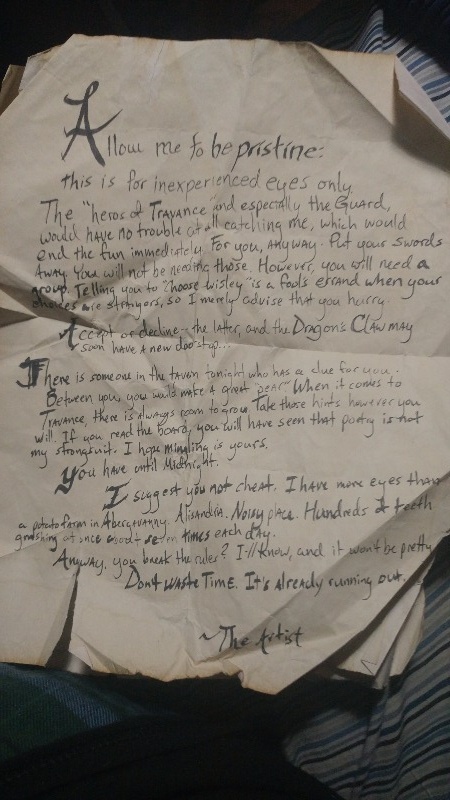 Allow me to be pristine:
this is for inexperienced eyes only.
The "heros of Travance" and especially the Guard,
would have no trouble at all catching me, which would
end the fun immediately. For you, anyway. Put your swords
away. You will not be needing those. However, you will need a
group. Telling you to "choose wisley" is a fools errand when your
choices are strangers, so I merely advise that you hurry.
Accept or decline-- the latter, and the Dragon's Claw may
soon have a new doorstop...
There is someone in the tavern tonight who has a clue for you.
Between you, you would make a great "pear" When it comes to
Travance, there is always room to grow. Take those hints however you
will. If you read the board, you will have seen that poetry is not
my strongsuit. I hope mingling is yours.
You have until Midnight.
I suggest you not cheat. I have more eyes than
a potato farm in Abergavanny. Alisandria. Noisy place. Hundreds of teeth
gnashing at once about seven times each day.
Anyway. you break the rules? I'll know, and it won't be pretty.
Don't waste Time. It's already running out.
~The Artist